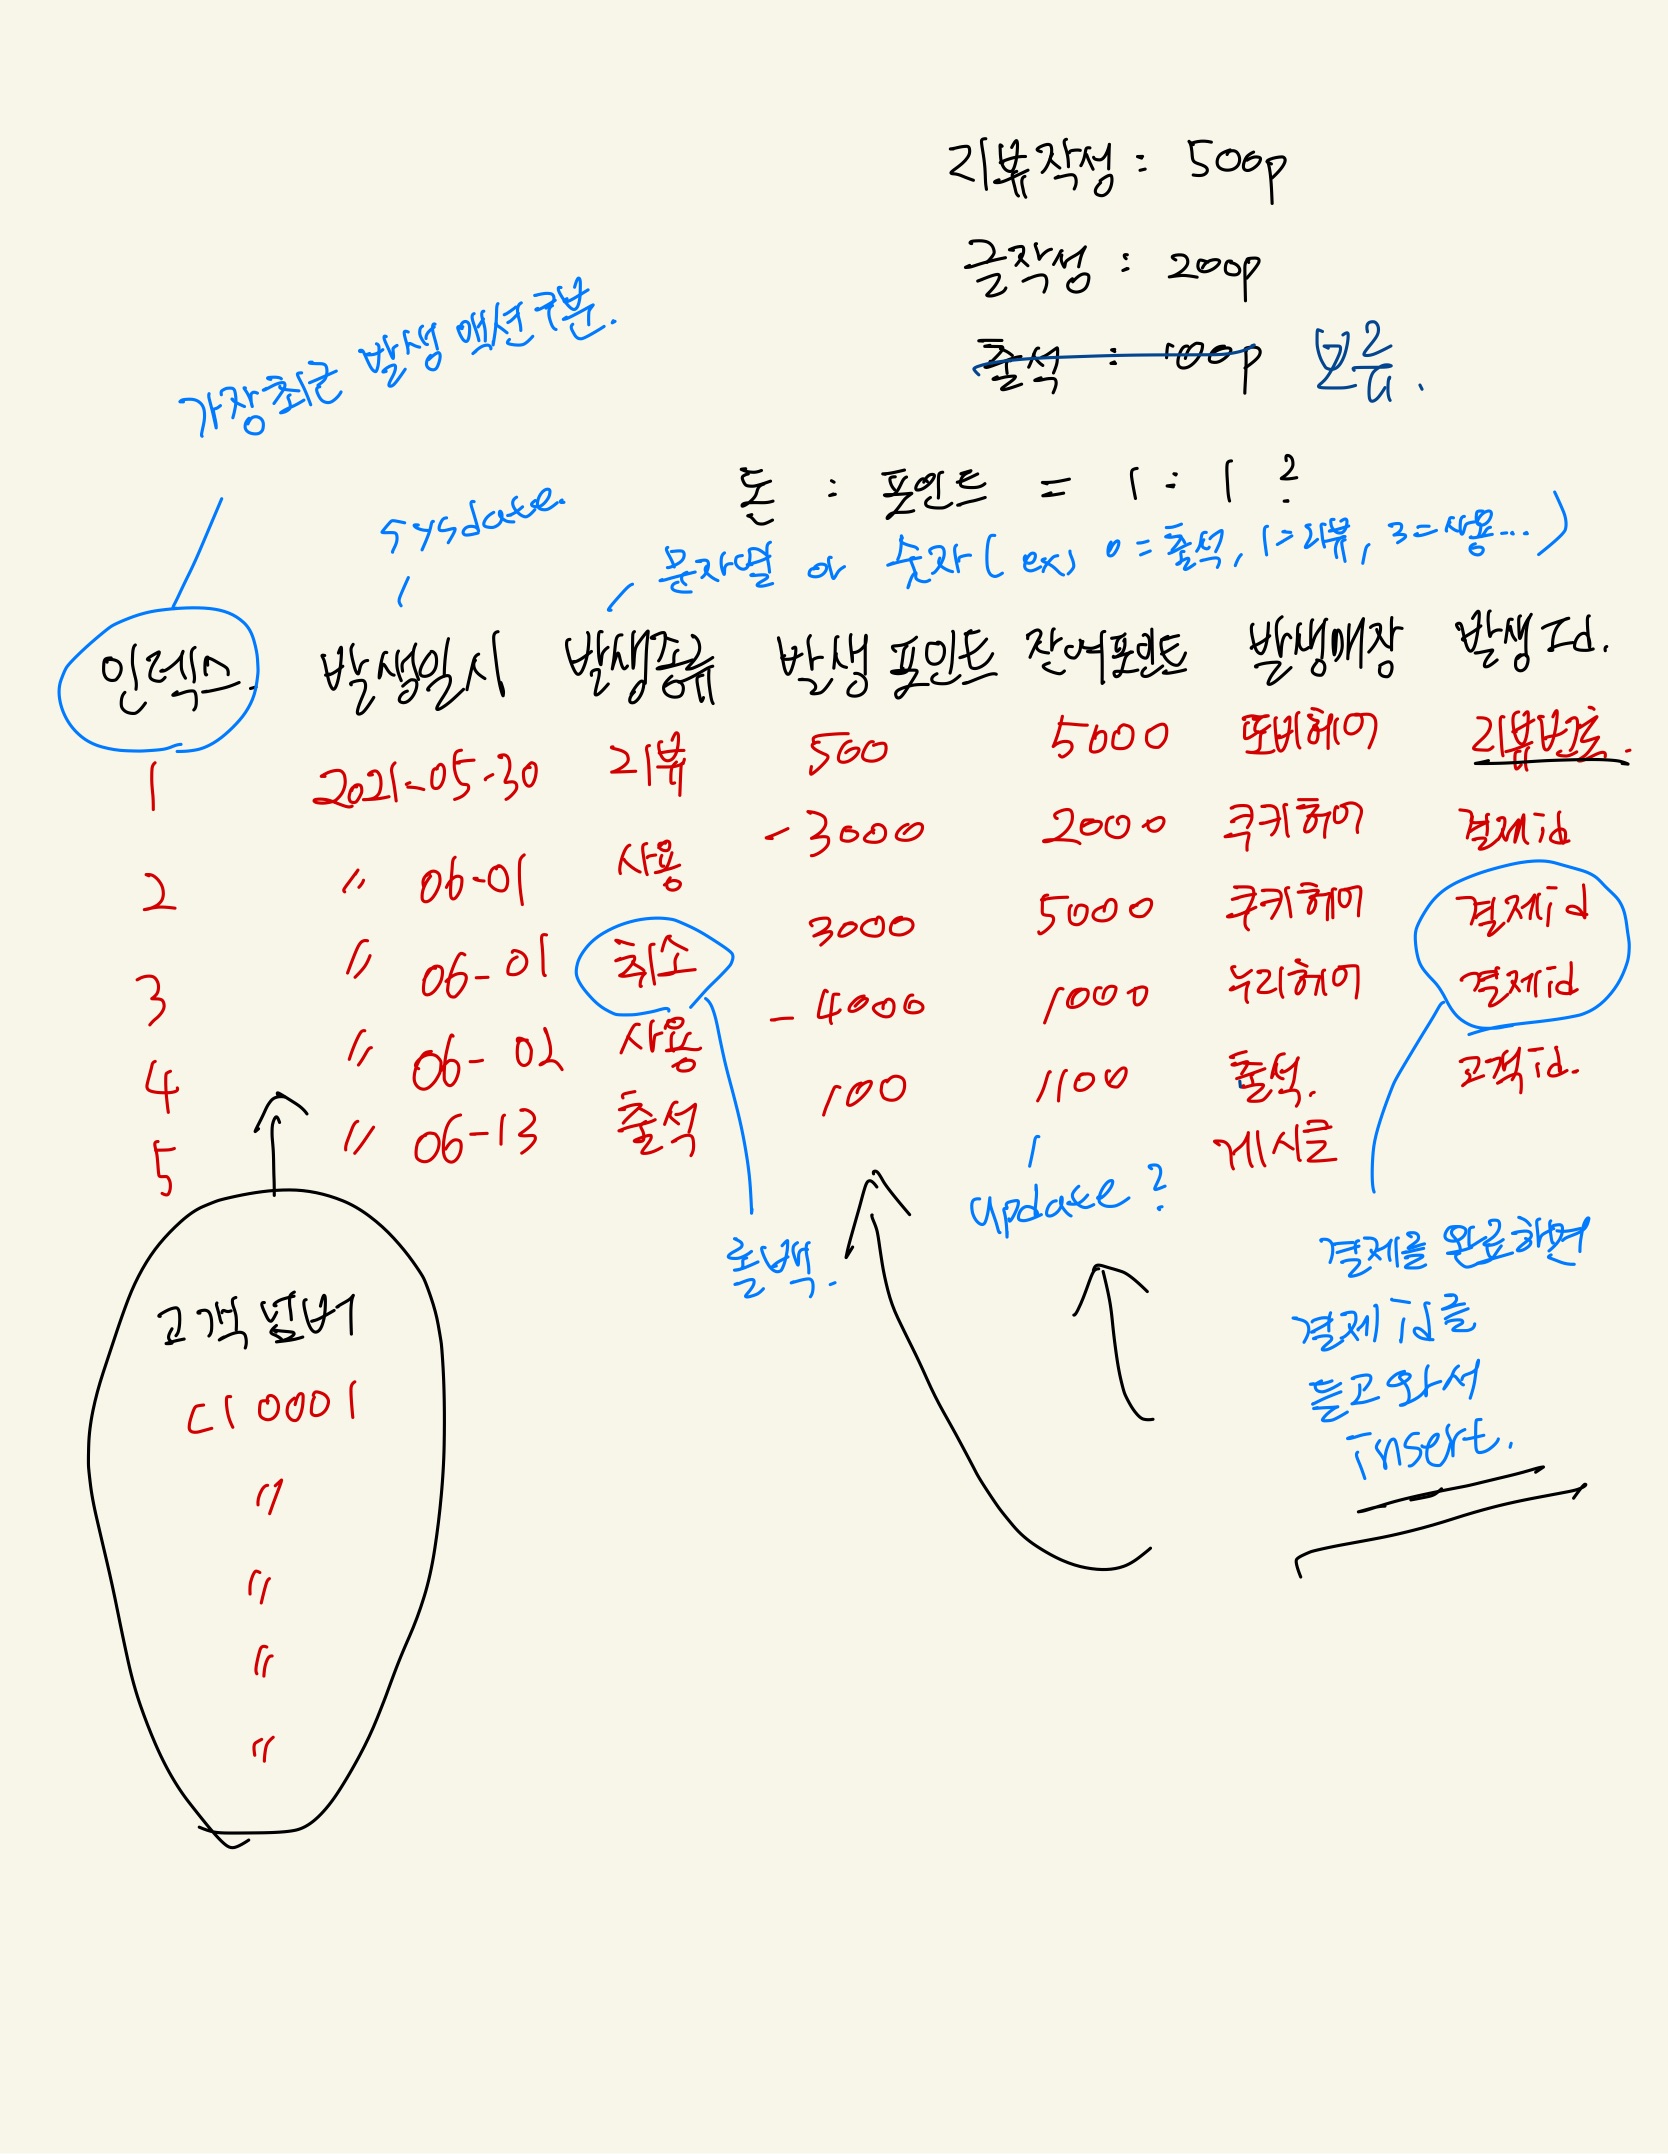 리뷰작성 : 500p
글작성 : 200p
출석 : 100p 보류.
가장최근 발생 액션구분.
돈 : 포인트 = 1 : 1 ?
sysdate.
문자열 or 숫자 ( ex) 0 = 출석, 1 = 리뷰, 3 = 사용... )
인덱스. 발생일시 발생종류 발생 포인트 잔여포인트 발생매장 발생 Id.
1 2021-05-30 리뷰 500 5000 또비헤어 리뷰번호.
2 〃 06-01 사용 -3000 2000 쿠키헤어 결제id
3 〃 06-01 취소 3000 5000 쿠키헤어 결제id
4 〃 06-02 사용 -4000 1000 누리헤어 결제id
5 〃 06-13 출석 100 1100 출석. 고객id.
게시글
update ?
롤백.
결제를 완료하면
결제 id를
들고와서
insert.
고객 넘버
C10001
〃
〃
〃
〃